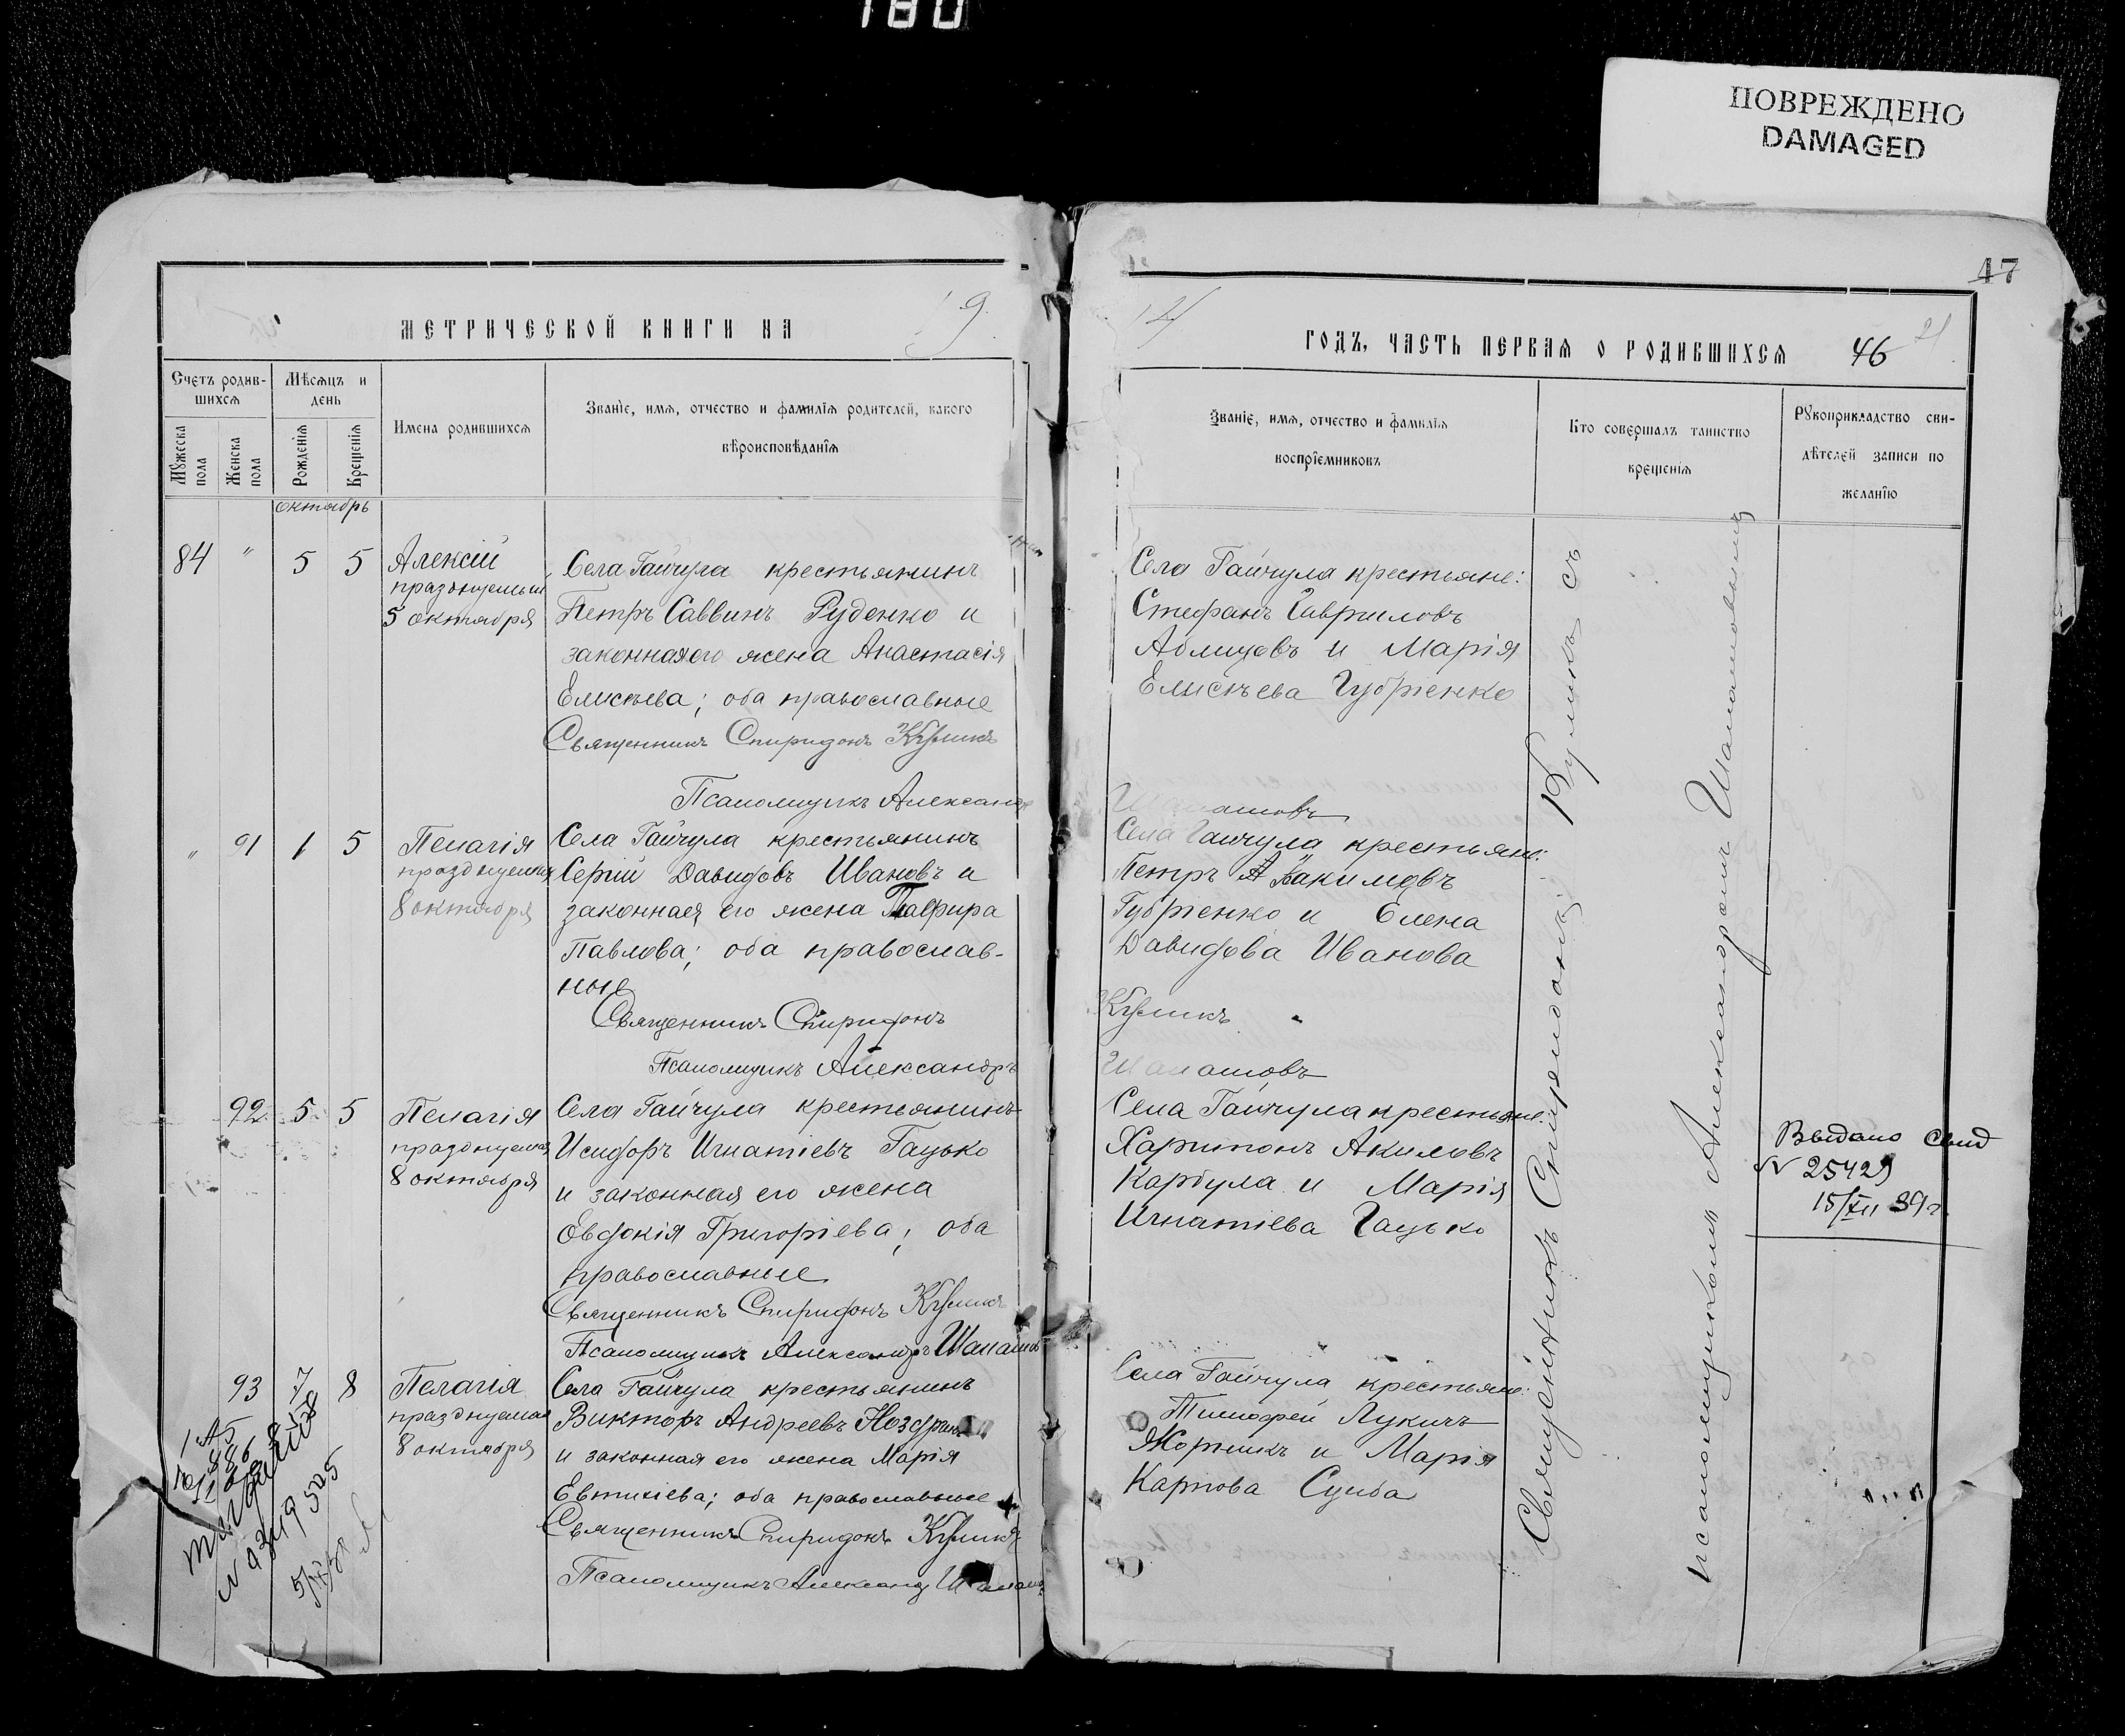 180
ПОВРЕЖДЕНО
DAMAGED
47
МЕТРИЧЕСКОЙ КНИГИ НА 19
Счетъ родив-
шихся
Мѣсяцъ и
день
Мужеска
пола
Женска
пола
Рожденія
Крещенія
Имена родившихся
Званіе, имя, отчество и фамилія родителей, какого
вѣроисповѣданія
октябрь
84 " 5 5
Алексій
празднуемый
5 октября
Села Гайчула крестьянинъ
Петръ Саввинъ Руденко и
законная его жена Анастасія
Елисѣева; оба православные
Священникъ Спиридонъ Куликъ
Псаломщикъ Александръ
" 91 1 5
Пелагія
празднуемая
8 октября
Села Гайчула крестьянинъ
Сергій Давидовъ Ивановъ и
законная его жена
Павлова; оба православ-
ные
Священникъ Спиридонъ
Псаломщикъ Александръ
92 5 5
Пелагія
празднуемая
8 октября
Села Гайчула крестьянинъ
Исидоръ Игнатіевъ Гацько
и законная его жена
Евдокія Григоріева; оба
православные
Священникъ Спиридонъ Куликъ
Псаломщикъ Александръ
93 7 8
Пелагія
празднуемая
8 октября
Села Гайчула крестьянинъ
Викторъ Андреевъ
и законная его жена Марія
Евтихіева; оба православные
Священникъ Спиридонъ Куликъ
Псаломщикъ
14
ГОДЪ, ЧАСТЬ ПЕРВАЯ О РОДИВШИХСЯ 46
21
Званіе, имя, отчество и фамилія
воспріемниковъ
Кто совершалъ таинство
крещенія
Рукоприкладство сви-
дѣтелей записи по
желанію
Села Гайчула крестьяне:
Стефанъ Гавриловъ
и Марія
Елисѣева Губріенко
Села Гайчула крестьяне:
Петръ
Губріенко и Елена
Давидова Иванова
Куликъ
Села Гайчула крестьяне:
Харитонъ Акимовъ
Карбула и Марія
Игнатіева Гацько
Села Гайчула крестьяне:
Тимофей Лукичъ
и Марія
Карпова
Священникъ Спиридонъ Куликъ съ
псаломщикомъ Александромъ
Выдано свид
N 25429
15/XII 39г.